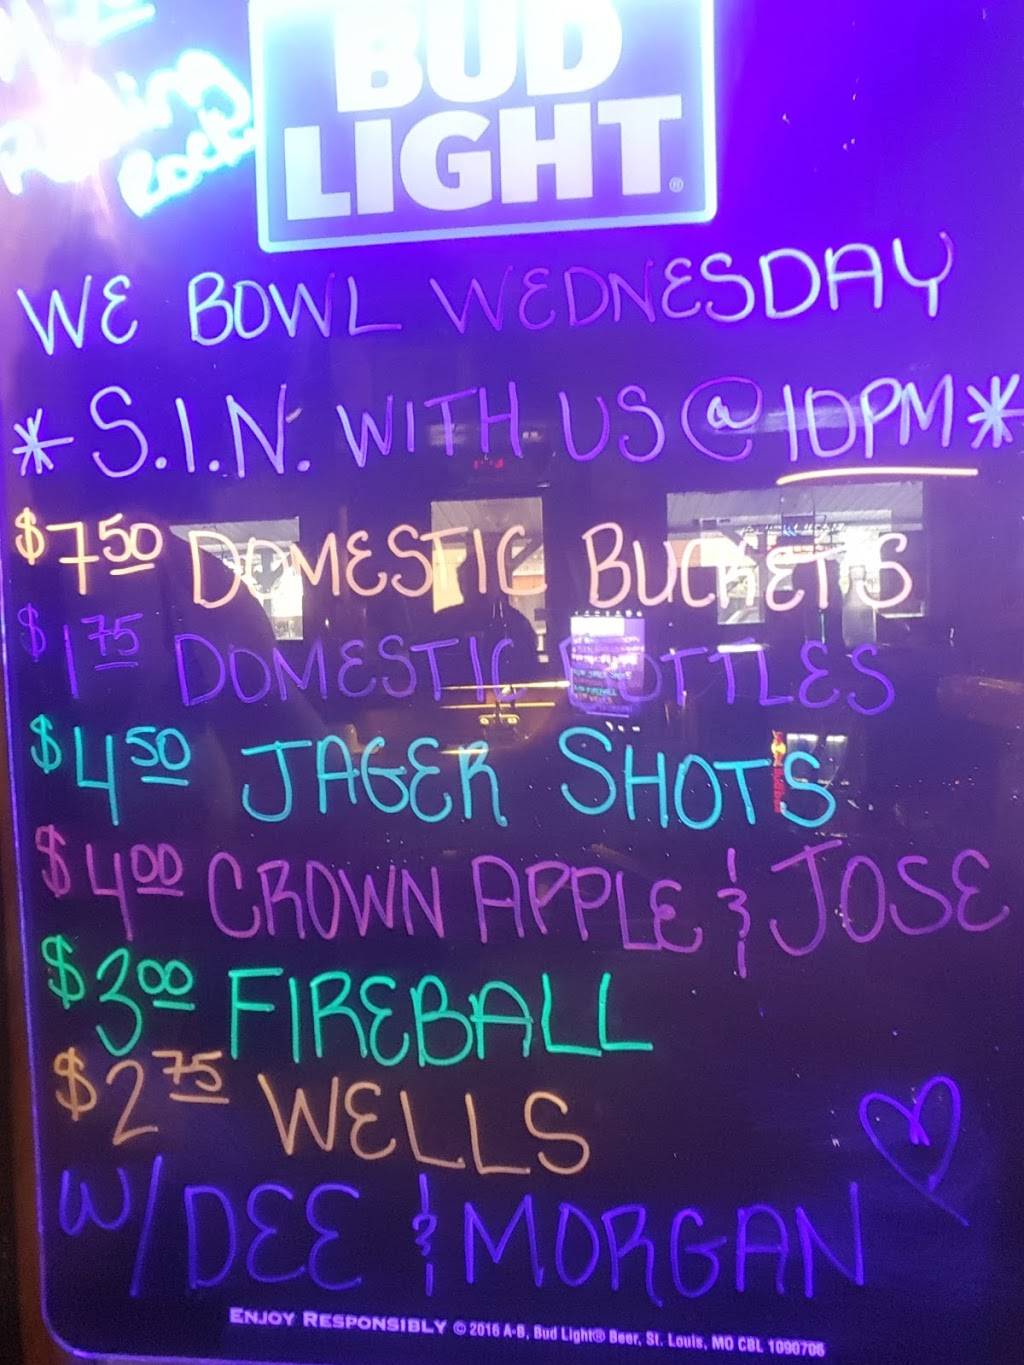 Rock
BUD
LIGHT®
WE BOWL WEDNESDAY
* S.I.N. WITH US @ 10PM *
$7.50 DOMESTIC BUCKETS
$1.75 DOMESTIC BOTTLES
$4.50 JAGER SHOTS
$4.00 CROWN APPLE & JOSE
$3.00 FIREBALL
$2.75 WELLS
W/ DEE & MORGAN
ENJOY RESPONSIBLY © 2016 A-B, Bud Light® Beer, St. Louis, MO CBL 1090706